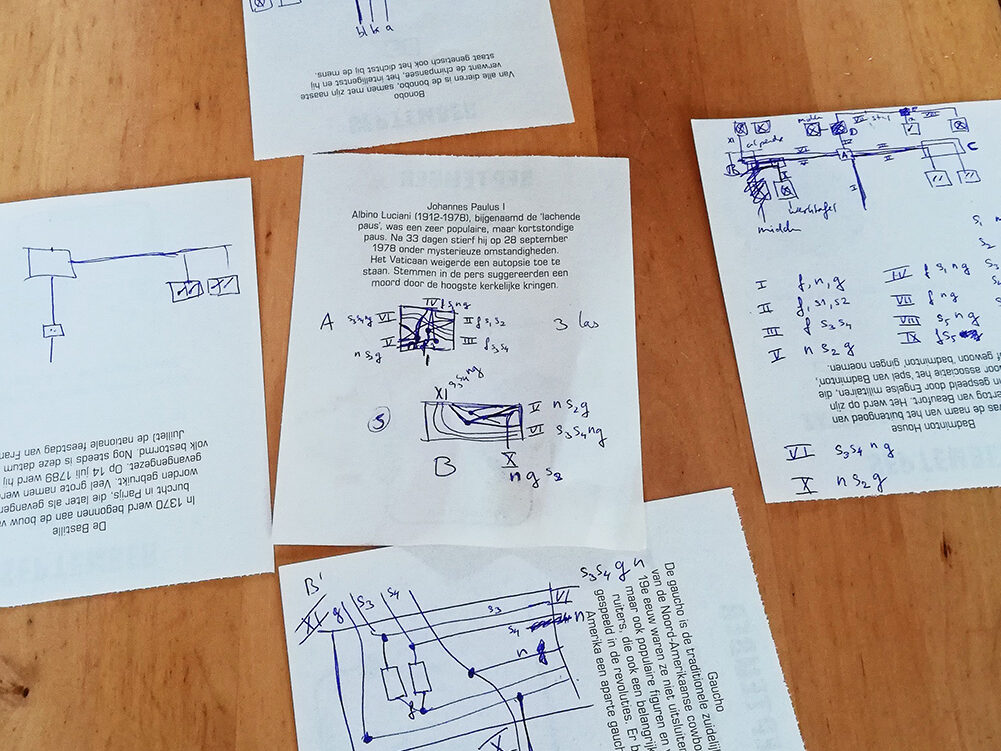 bl k a
Van alle dieren is de bonobo, samen met zijn naaste
verwant de chimpansee, het intelligentst en hij
staat genetisch ook het dichtst bij de mens.
Bonobo
SEPTEMBER
Johannes Paulus I
Albino Luciani (1912-1978), bijgenaamd de 'lachende
paus', was een zeer populaire, maar kortstondige
paus. Na 33 dagen stierf hij op 28 september
1978 onder mysterieuze omstandigheden.
Het Vaticaan weigerde een autopsie toe te
staan. Stemmen in de pers suggereerden een
moord door de hoogste kerkelijke kringen.
IV f s, n g
A s3 s4 n g VI II f s1 s2 3 las
n s2 g V III f s3 s4
I
XI s3 s4 n g
5 V n s2 g
VI s3 s4 n g
B X
n g s2
De Bastille
In 1370 werd begonnen aan de bouw va
burcht in Parijs, die later als gevangen
worden gebruikt. Veel grote namen wer
gevangengezet. Op 14 juli 1789 werd hij
volk bestormd. Nog steeds is deze datum
Juillet de nationale feestdag van Fran
XI
midden
B
A
C
D
I
werktafel
midden
s1
s2
I f, n, g
II f, s1, s2
III f s3 s4
V n s2 g
IV f s, n g
VII f n g
VIII s5 n g
IX f s5
Badminton House
was de naam van het buitengoed van
ertog van Beaufort. Het werd op zijn
gespeeld door Engelse militairen, die,
oor associatie het spel van Badminton,
f gewoon 'badminton' gingen noemen.
VI s3 s4 n g
X n s2 g
B'
XI g s3 s4
s3 VI
s4 n
n g
f
X
s3 s4 g n
Gaucho
De gaucho is de traditionele zuidelij
van de Noord-Amerikaanse cowbo
19e eeuw waren ze niet uitsluiten
maar ook populaire figuren en
ruiters, die ook een belangrijk
gespeeld in de revoluties. Er b
Amerika een aparte gauch